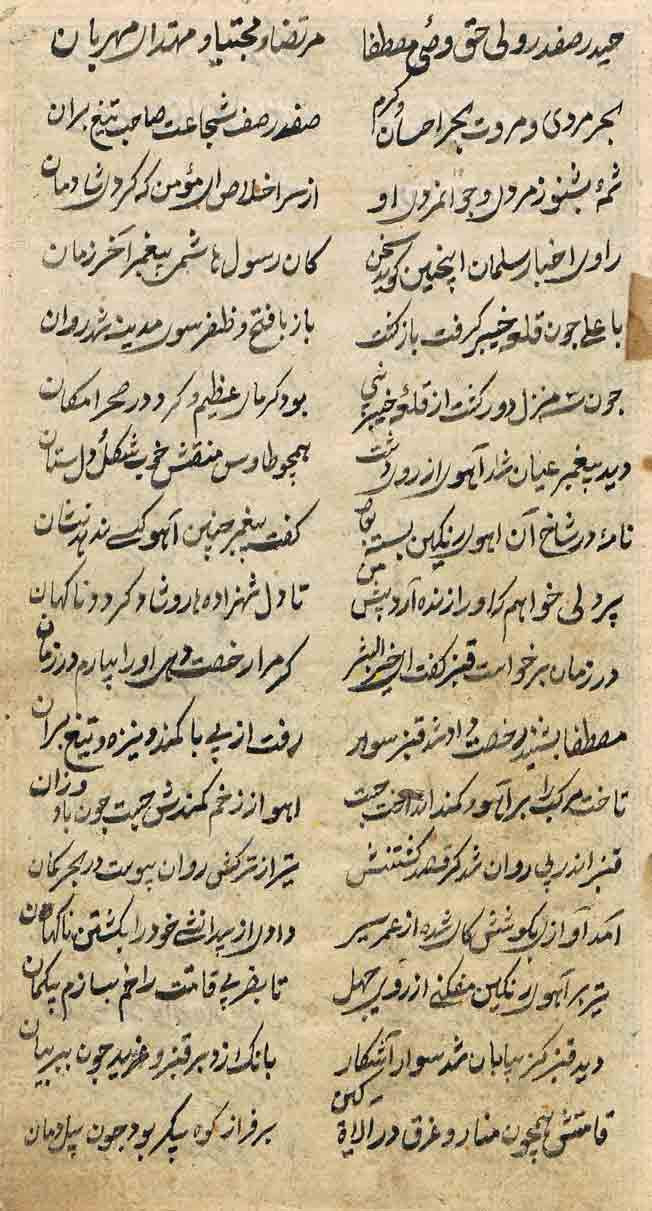 حیدر صفدر ولی حق وصی مصطفا مرتضا و مجتبا و مقتدای مهربان
بحر مردی و مروت بحر احسان و کرم صفدر صف شجاعت صاحب تیغ بران
شمهٔ بشنو ز مردی و جوانمردی او از سر اخلاص ای مؤمن که کردی شادمان
راوی اخبار سلمان اینچنین گوید سخن کان رسول هاشمی پیغمبر آخر زمان
با علی چون قلعهٔ خیبر گرفت بازگشت باز با فتح و ظفر سوی مدینه شد روان
چون سه منزل دور گشت از قلعهٔ خیبر نبی بود گرمای عظیم و کرد در صحرا مکان
دید پیغمبر عیان شد آهوی از روی دشت همچو طاوس منقش خوب شکل و دلستان
نامهٔ در شاخ آن اهوی رنگین بسته بود گفت پیغمبر چنین آهو کسی ندهد نشان
پر دلی خواهم که او را زنده آرد پیش من تا دل شهزاده‌ها رو شاد گردد ناگهان
در زمان برخواست قنبر گفت ای خیر البشر گر مرا رخصت دهی او را بیارم در زمان
مصطفا بشنید رخصت داد شد قنبر سوار رفت از پی با کمند و نیزه و تیغ بران
تاخت مرکب را بر آهو و کمند انداخت جست اهو از زخم کمندش جست چون باد وزان
قنبر اندر پی روان شد کرد قصد کشتنش تیر از ترکش روان پیوست در بحر کمان
آمد آوازی بگوشش کای شده از عمر سیر دادی از بیدانشی خود را بکشتن ناگهان
تیر بر آهوی رنگین مفکنی از روی جهل تا بضربی قامتت را خم بسازم بیگمان
دید قنبر کز بیابان شد سوار آشکار بانگ زد بر قنبر و غرید چون ببر بیان
قامتش همچون منار و غرق در الاة کین بر فراز کوه پیکر بود چون پیل دمان